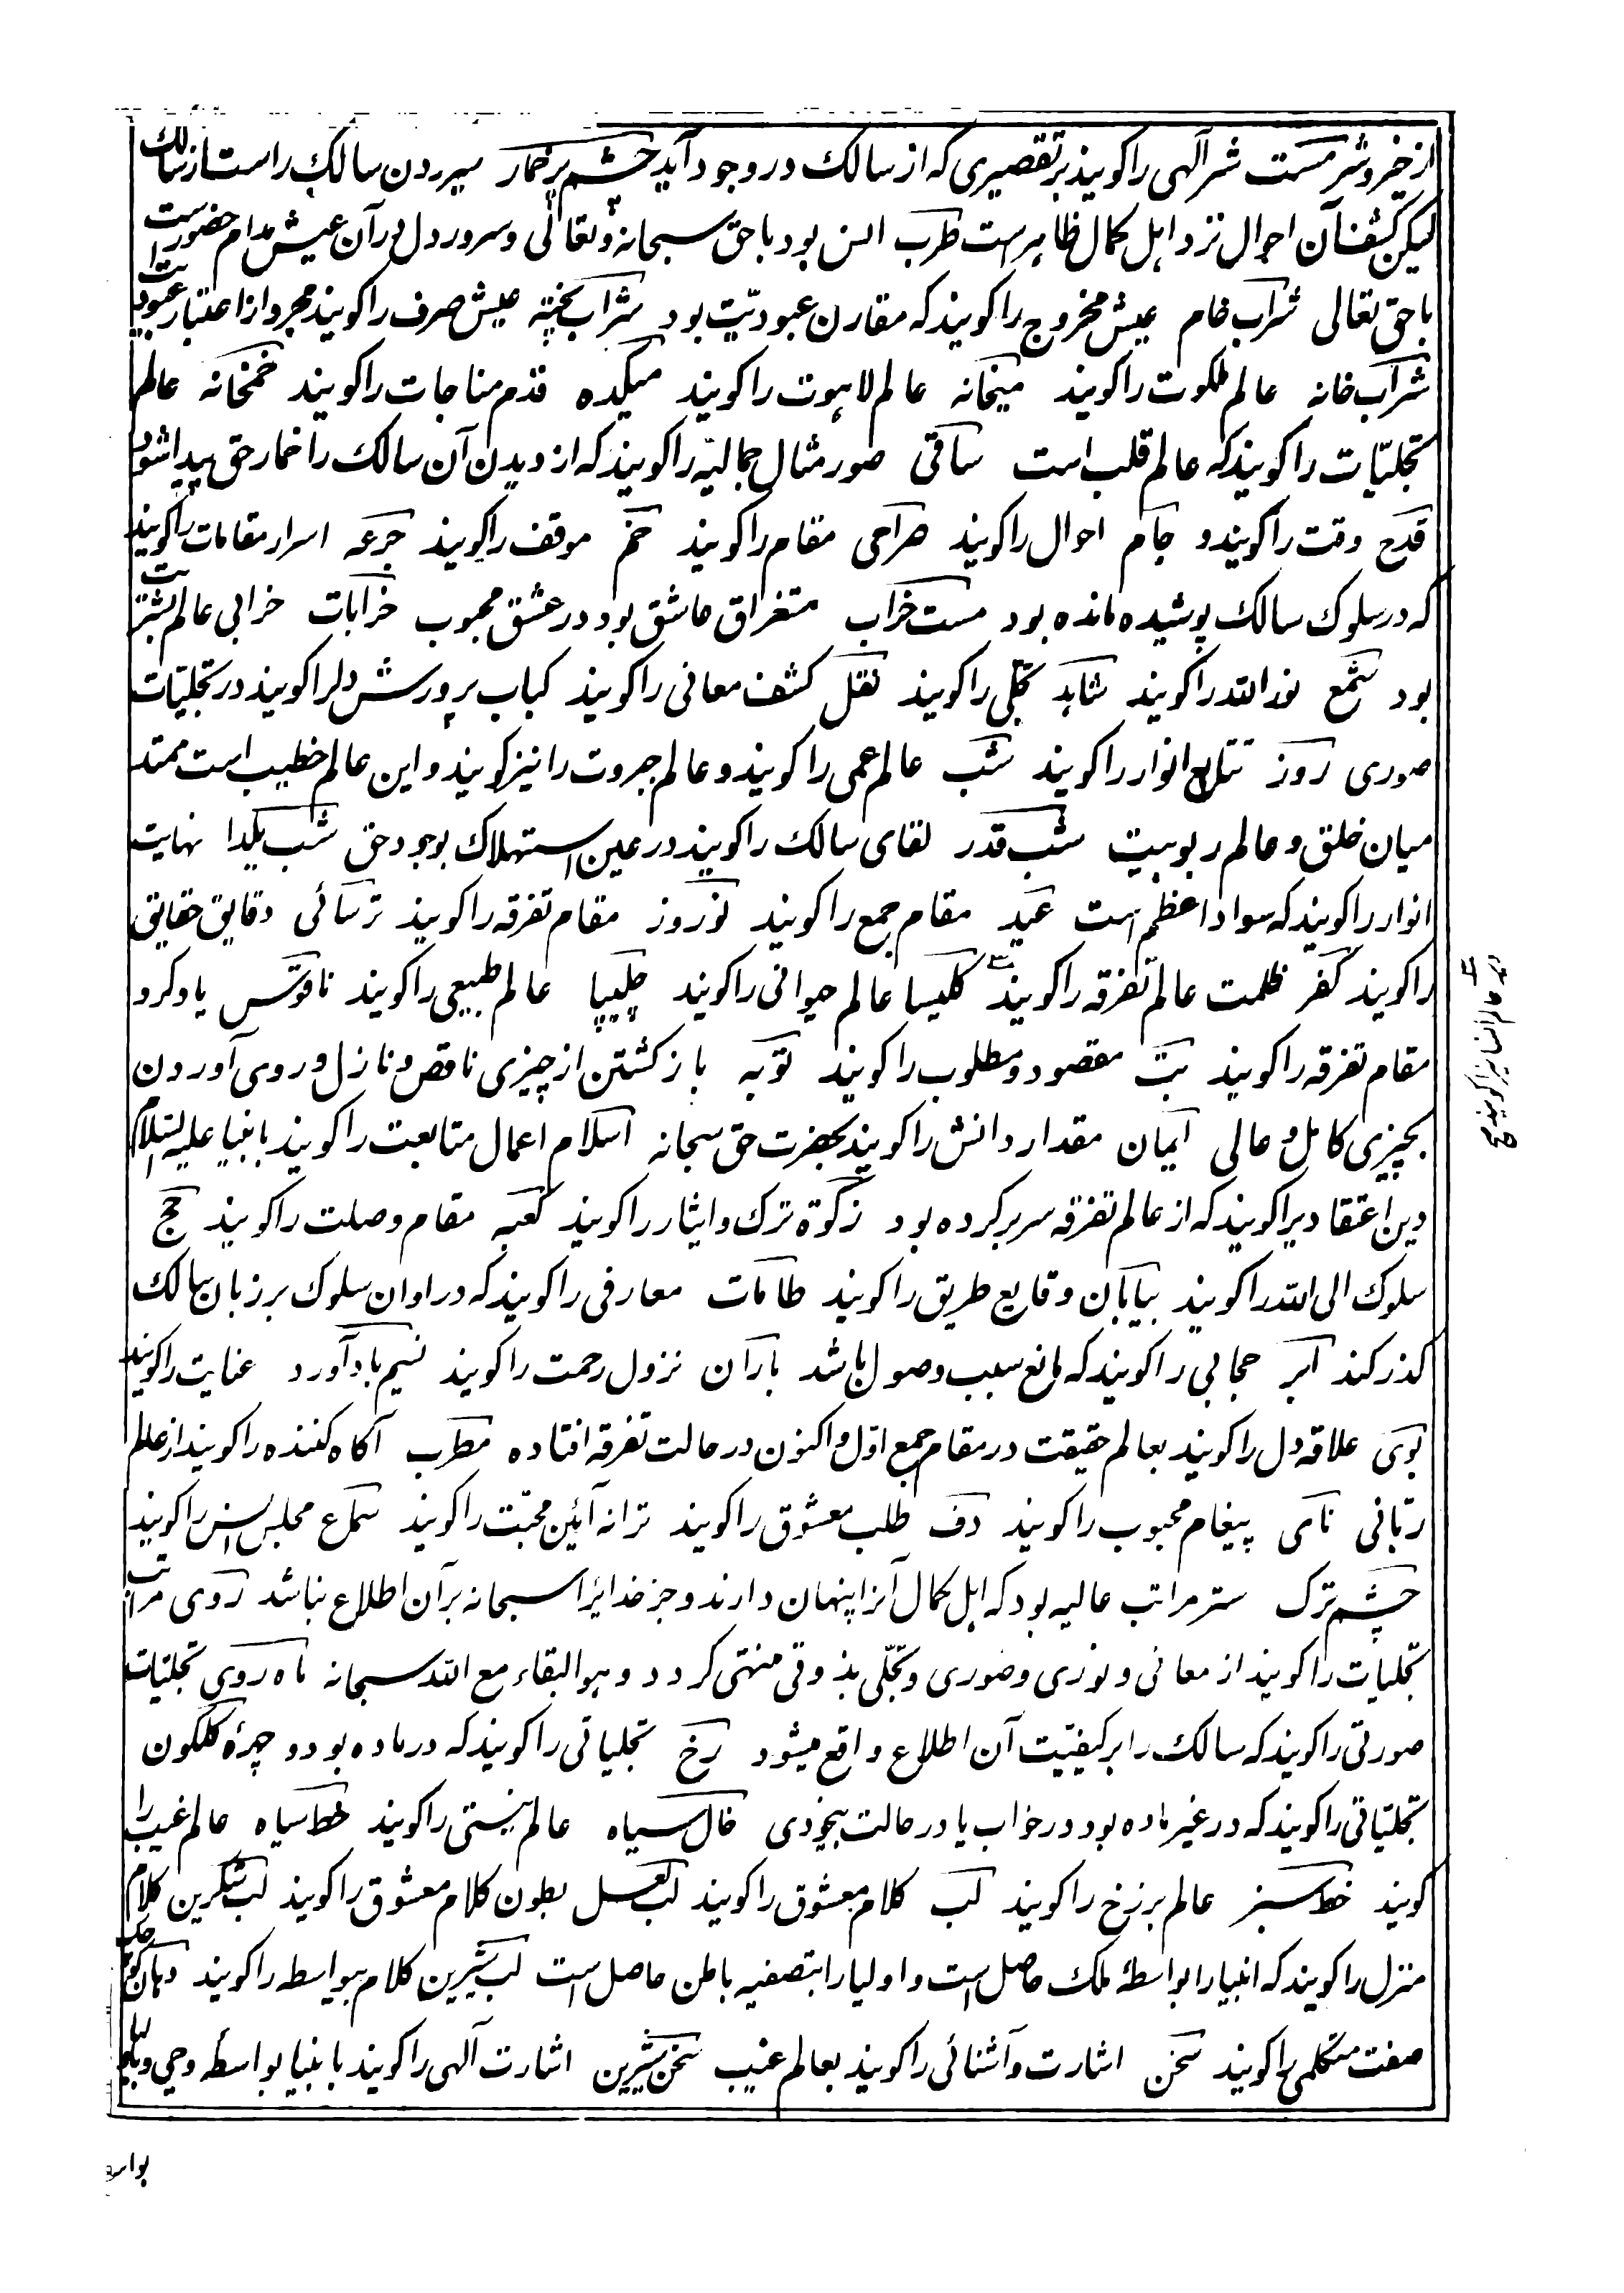 از خیر و شر مست شر آلهی را کویند بر تقصیری که از سالک در وجود آید چشم پرخمار سیر دن سالک راست از سالک
لیکن کشف آن احوال نزد اهل کمال ظاهر است طرب انس بود با حق سبحانه و تعالی و سرور دل در آن عیش مدام حضورست
با حق تعالی شراب خام عیش مخروج را کویند که مقارن عبودیّت بود شراب پخته عیش صرف را کویند مجرد از اعتبار عبودیت
شراب خانه عالم ملکوت را کویند میخانه عالم لاهوت را کویند میکده قدم مناجات را کویند خمخانه عالم
تجلیّات را کویند که عالم قلب است ساقی صور مثال جمالیّه را کویند که از دیدن آن سالک را خمار حق پیدا شود
قدح وقت را کویند و جام احوال را کویند صراحی مقام را کویند خم موقف را کویند جرعه اسرار مقامات را کویند
که در سلوک سالک پوشیده مانده بود مست خراب متغراق عاشق بود در عشق محبوب خرابات خرابی عالم بشریت
بود شمع نور الله را کویند شاهد تجلی را کویند نقل کشف معانی را کویند کباب پرورش دلرا کویند در تجلیّات
صوری روز تتابع انوار را کویند شب عالم عمی را کویند و عالم جبروت را نیز کویند و این عالم خطیب است ممتد
میان خلق و عالم ربوبیت شب قدر لقای سالک را کویند در عین استهلاک بوجود حق شب یلدا نهایت
انوار را کویند که سواد اعظم است عید مقام جمع را کویند نوروز مقام تفرقه را کویند ترسائی دقایق حقایق
را کویند کفر ظلمت عالم تفرقه را کویند کلیسا عالم حیوانی را کویند چلیپا عالم طبیعی را کویند ناقوس یاد کرد
دیر عالم انسانیرا کویند صح
مقام تفرقه را کویند بت مقصود و مطلوب را کویند توبه باز کشتن از چیزی ناقص و نازل و روی آوردن
بچیزی کامل و عالی ایمان مقدار دانش را کویند بحضرت حق سبحانه اسلام اعمال متابعت را کویند بانبیا علیه السّلام
دین اعتقادیرا کویند که از عالم تفرقه سر بر کرده بود زکوة ترک و ایثار را کویند کعبه مقام وصلت را کویند حج
سلوک الی الله را کویند بیابان وقایع طریق را کویند طامات معارفی را کویند که در اوان سلوک بر زبان سالک
کذر کند ابر حجابی را کویند که مانع سبب وصول باشد باران نزول رحمت را کویند نسیم یاد آورد عنایت را کویند
بوی علاقه دل را کویند بعالم حقیقت در مقام جمع اوّل و اکنون در حالت تفرقه افتاده مطرب آکاه کننده را کویند از عالم
ربّانی نای پیغام محبوب را کویند دف طلب معشوق را کویند ترانه آئین محبّت را کویند سماع مجلس انس را کویند
چشم ترک ستر مراتب عالیه بود که اهل کمال آنرا پنهان دارند و جز خدایرا سبحانه بر آن اطلاع نباشد روی مرات
تجلیات را کویند از معانی و نوری و صوری و تجلّی بذوقی منتهی کردد و هو البقاء مع الله سبحانه ماه روی تجلیّات
صورتی را کویند که سالک را بر کیفیّت آن اطلاع واقع میشود رخ تجلیاتی را کویند که در ماده بود و چهرۀ کلکون
تجلّیاتی را کویند که در غیر ماده بود در خواب یا در حالت بیخودی خال سیاه عالم نیستی را کویند خط سیاه عالم غیب را
کویند خط سبز عالم برزخ را کویند لب کلام معشوق را کویند لب لعل بطون کلام معشوق را کویند لب شکرین کلام
منزل را کویند که انبیا را بواسطۀ ملک حاصل است و اولیا را بتصفیه باطن حاصل است لب شیرین کلام بیواسطه را کویند دهان کوچک
صفت متکلمی را کویند سخن اشارت و آشنائی را کویند بعالم غیب سخن شیرین اشارت آلهی را کویند بانبیا بواسطۀ وحی و باولیا
بواسـ